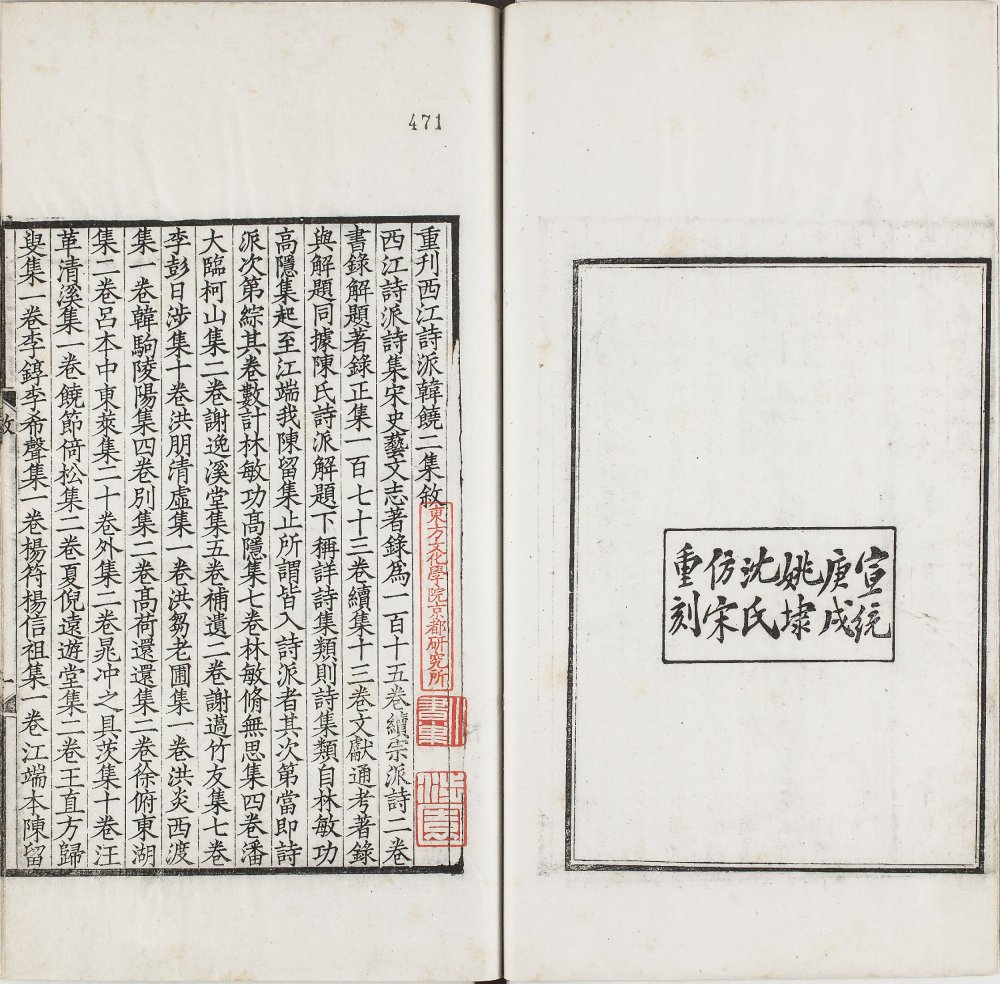 宣統
庚戌
姚埭
沈氏
仿宋
重刻
471
重刊西江詩派韓饒二集敘
西江詩派詩集宋史藝文志著錄爲一百十五卷續宗派詩二卷
書錄解題著錄正集一百七十三卷續集十三卷文獻通考著錄
與解題同據陳氏詩派解題下稱詳詩集類則詩集類自林敏功
高隱集起至江端我陳留集止所謂皆入詩派者其次第當即詩
派次第綜其卷數計林敏功高隱集七卷林敏脩無思集四卷潘
大臨柯山集二卷謝逸溪堂集五卷補遺二卷謝薖竹友集七卷
李彭日涉集十卷洪朋清虛集一卷洪芻老圃集一卷洪炎西渡
集一卷韓駒陵陽集四卷別集二卷高荷還還集二卷徐俯東湖
集二卷呂本中東萊集二十卷外集二卷晁冲之具茨集十卷汪
革清溪集一卷饒節倚松集二卷夏倪遠遊堂集二卷王直方歸
叟集一卷李錞李希聲集一卷楊符楊信祖集一卷江端本陳留
敘
一
東方文化學院京都研究所